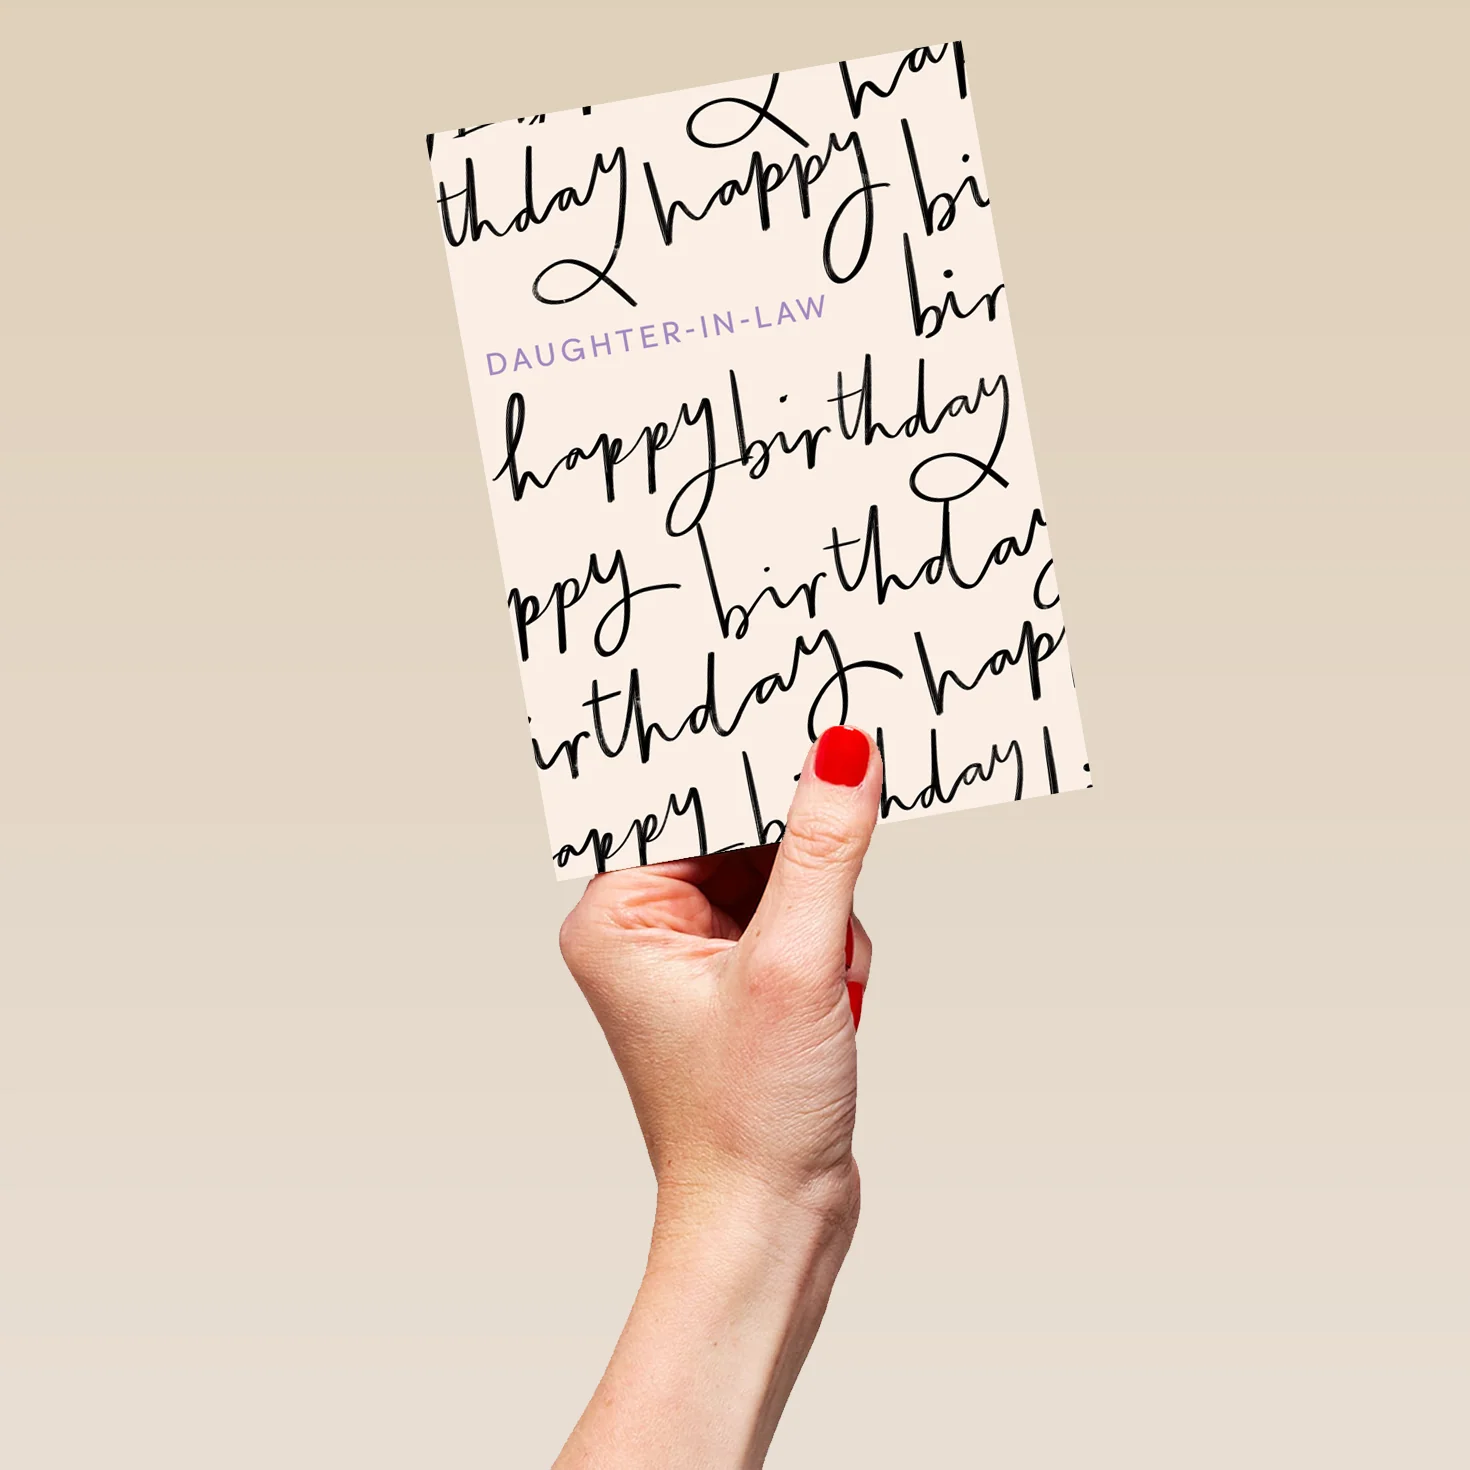 hap
thday happy bi
bir
DAUGHTER-IN-LAW
happy birthday
ppy birthday
irthday happ
appy b hday